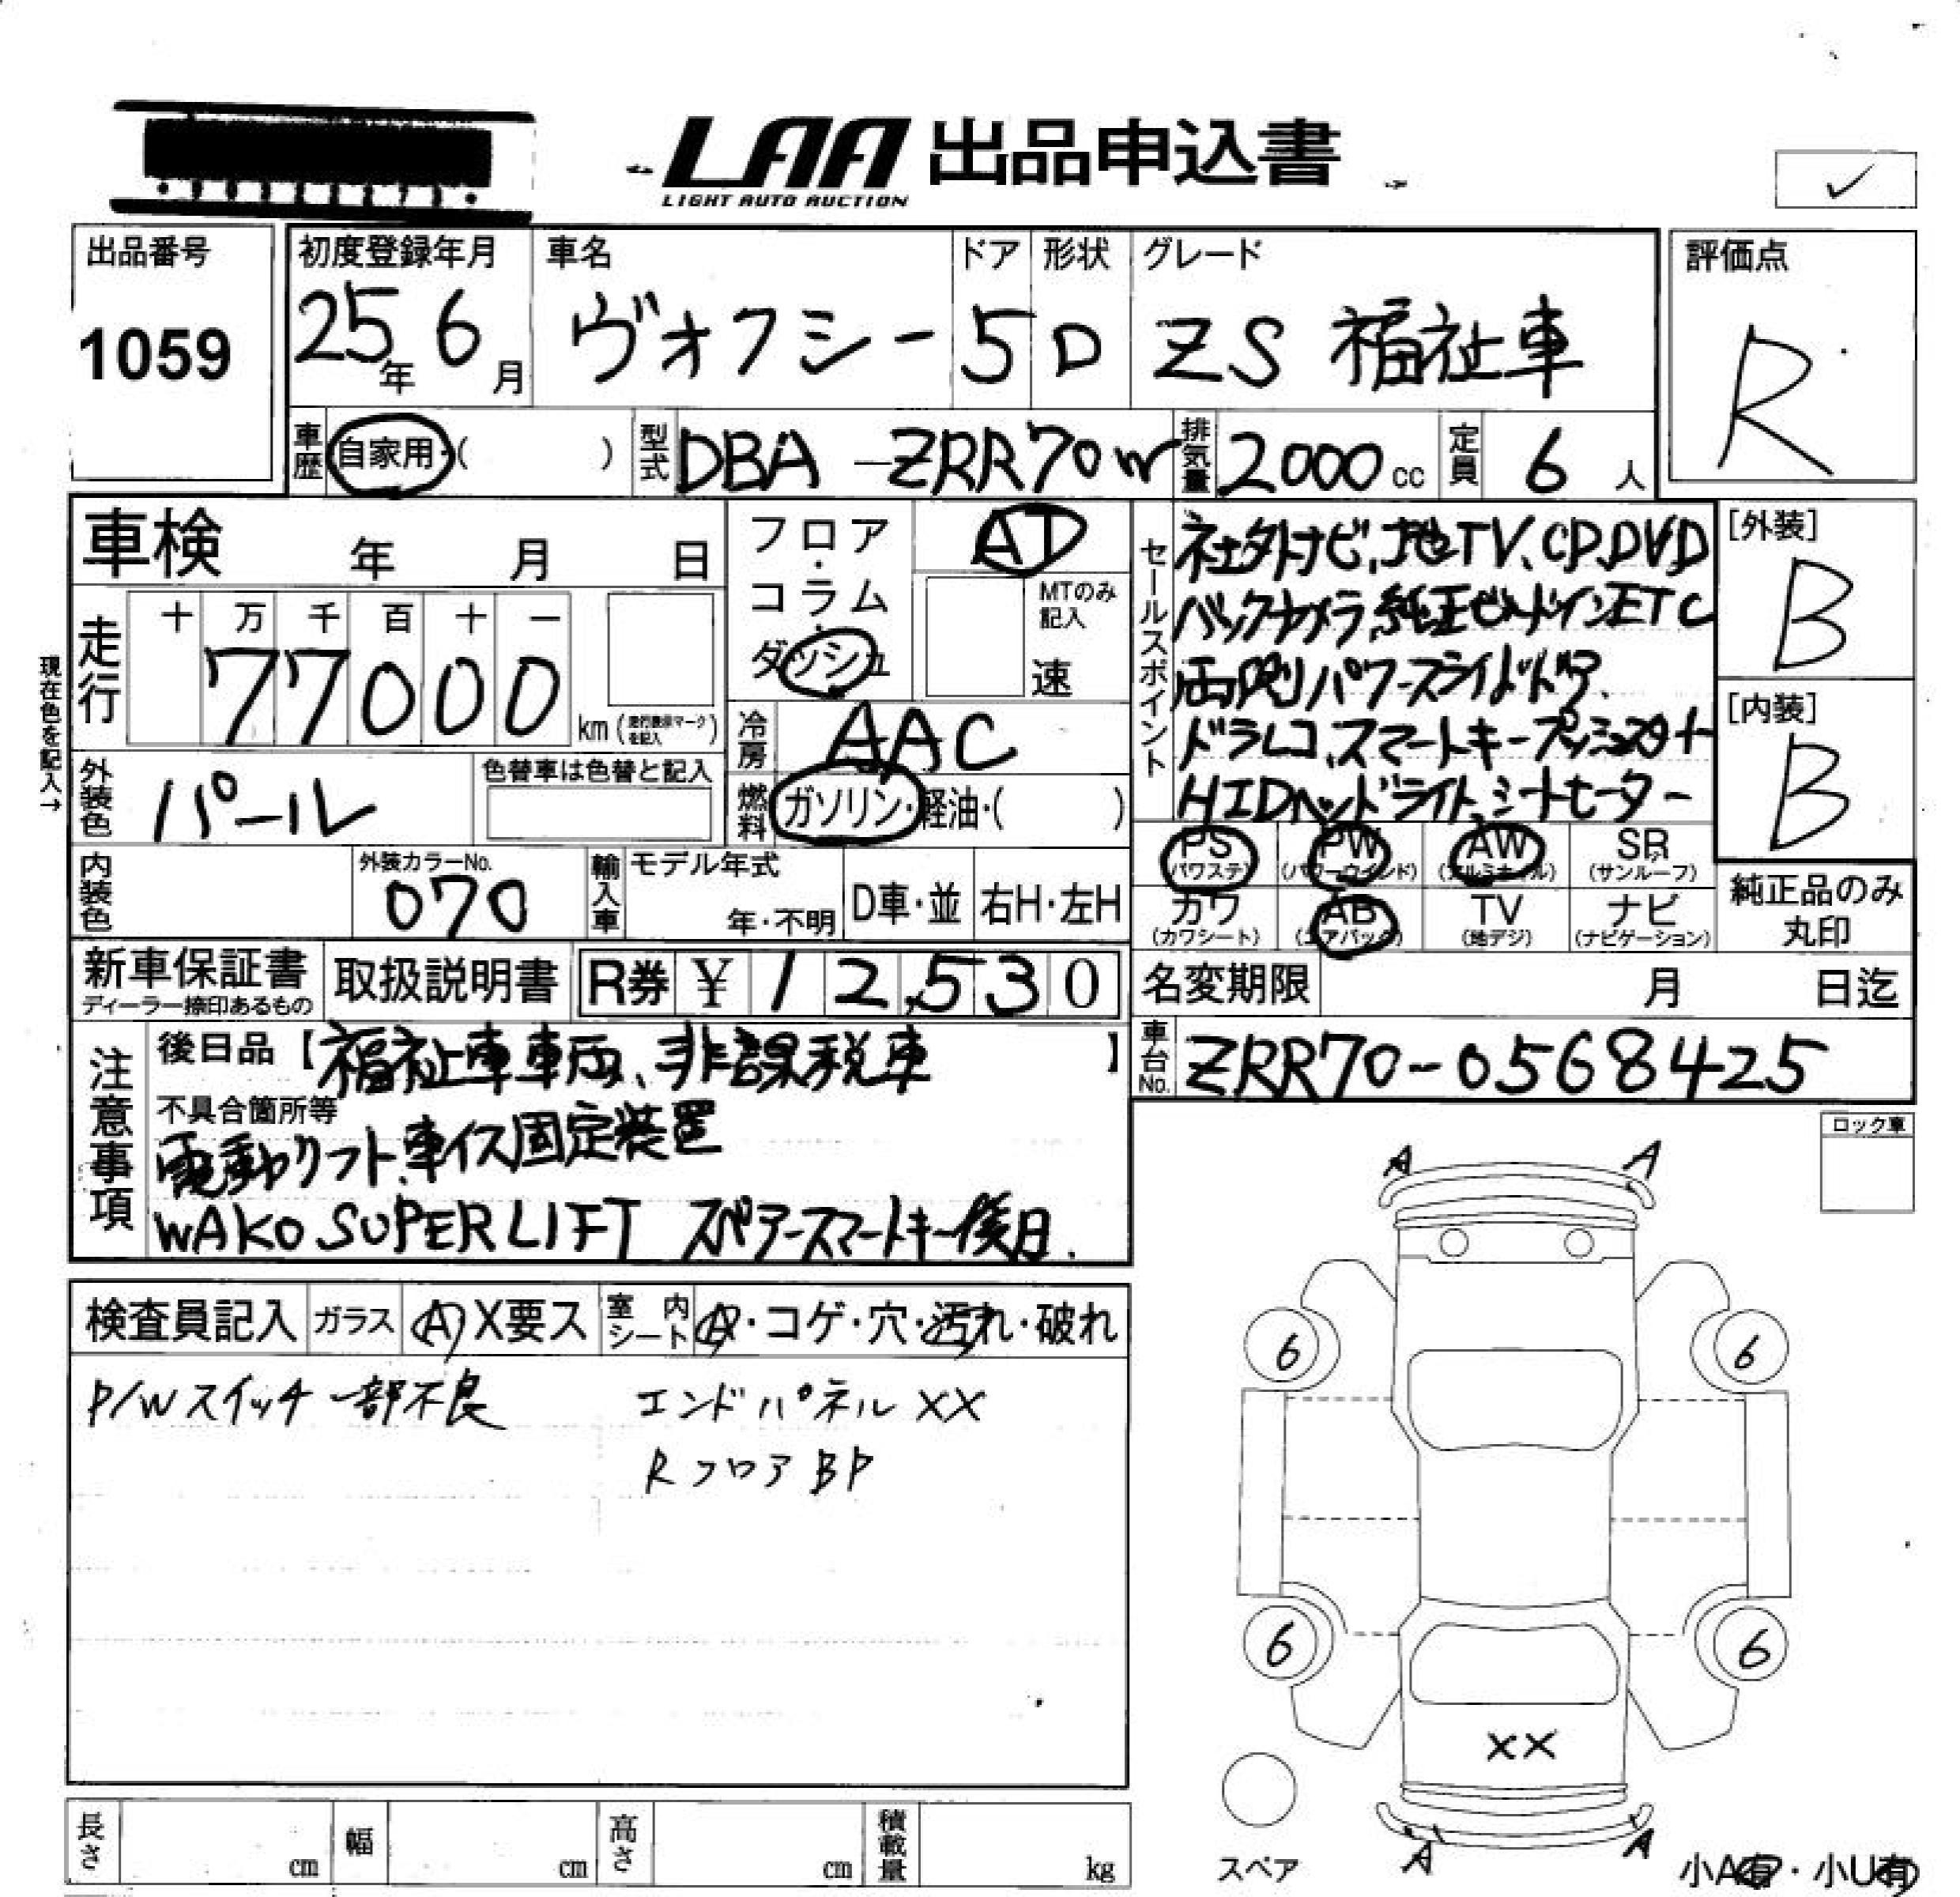 LAA 出品申込書
LIGHT AUTO AUCTION
出品番号
1059
初度登録年月
25年 6月
車名
ヴォクシー
ドア
5
形状
D
グレード
ZS 福祉車
評価点
R
車歴 自家用・( )
型式 DBA-ZRR70W
排気量 2000 cc
定員 6 人
車検 年 月 日
フロア・コラム・ダッシュ
AT
MTのみ記入
速
セールスポイント
社外ナビ,地TV,CD,DVD
バックカメラ,純正ビルドインETC
両側パワースライドドア.
ドラレコ,スマートキープッシュスタート
HIDヘッドライト,シートヒーター
[外装]
B
[内装]
B
現在色を記入→
走行
十 万 千 百 十 一
77000 km
(走行表示マークを記入)
冷房 AAC
外装色 パール
色替車は色替と記入
燃料 ガソリン・軽油・( )
内装色
外装カラーNo.
070
輸入車
モデル年式
年・不明
D車・並
右H・左H
PS (パワステ)
PW (パワーウインド)
AW (アルミホイル)
SR (サンルーフ)
カワ (カワシート)
AB (エアバック)
TV (地デジ)
ナビ (ナビゲーション)
純正品のみ
丸印
新車保証書
ディーラー捺印あるもの
取扱説明書
R券 ¥ 12,530
名変期限 月 日迄
車台No. ZRR70-0568425
注意事項
後日品【福祉車車両、非課税車】
不具合箇所等
電動リフト,車イス固定装置
WAKO SUPER LIFT スペアースマートキー後日.
ロック車
検査員記入
ガラス A X要ス
室内シート A・コゲ・穴・汚れ・破れ
P/Wスイッチ一部不良
エンドパネル XX
Rフロア BP
A A
6 6
6 6
XX
A A
スペア
小A有・小U有
長さ cm
幅 cm
高さ cm
積載量 kg